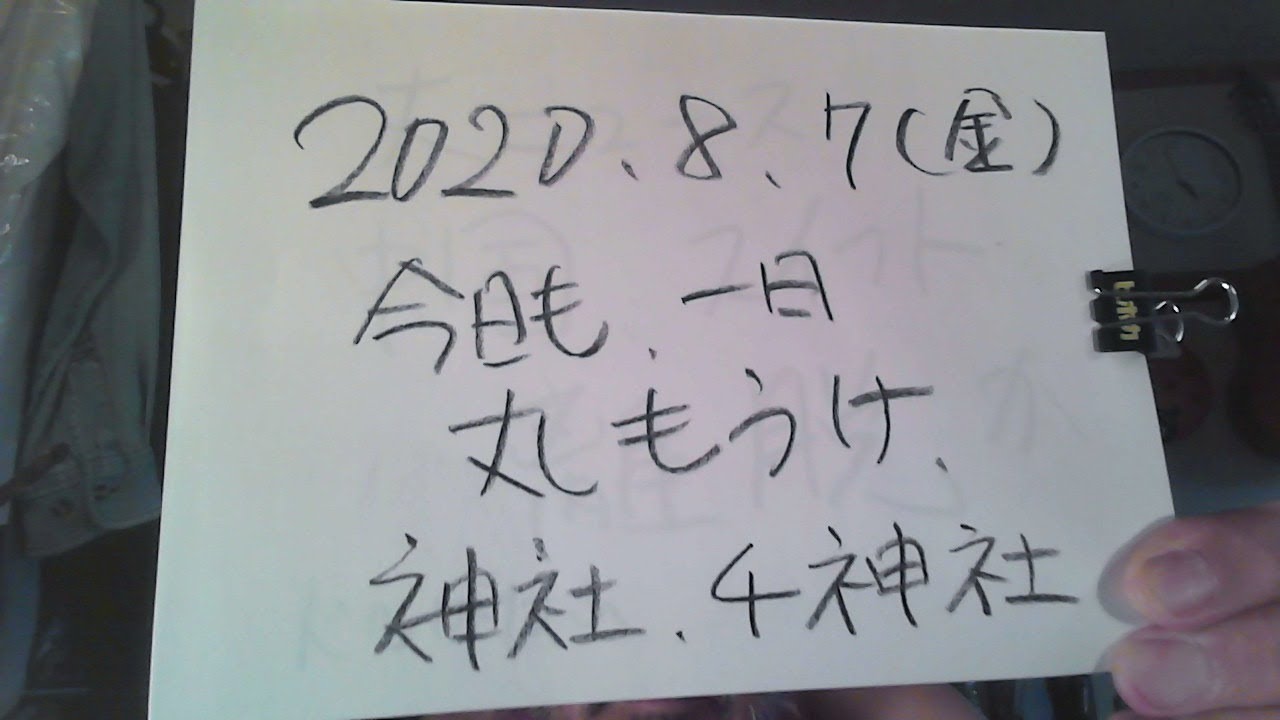 2020、8、7(金)
今日も、一日
丸もうけ、
神社、4神社